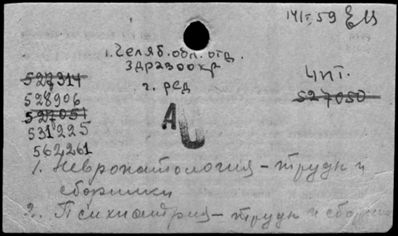 141г, 59
1. Челяб. обл. отд.
здравоохр
2. ред
чит.
527314
528906
527051
531225
562261
527050
1. Невропатология – труды и
сборники
2. Психиатрия – труды и сборн